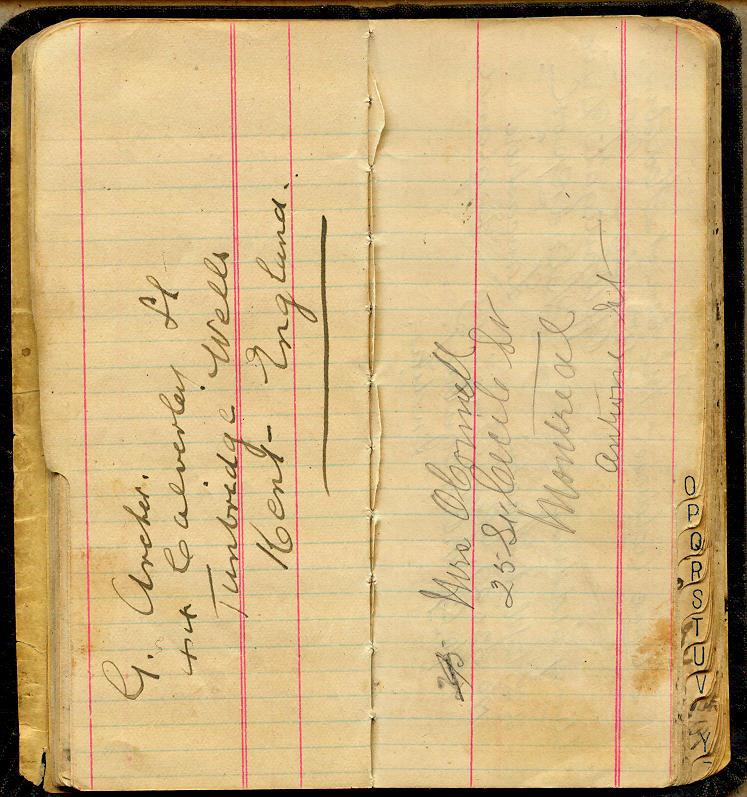 G. Archer.
44 Calverley St
Tunbridge Wells
Kent - England.
Mrs O Connell
25 St Cecile St
Montreal
Antoine St
O
P
Q
R
S
T
U
V
Y